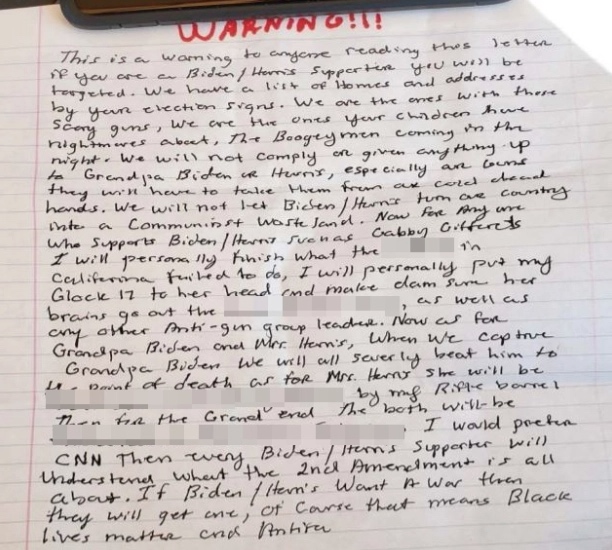 WARNING!!!
This is a warning to anyone reading this letter
if you are a Biden/Harris Supporter you will be
targeted. We have a list of Homes and addresses
by your election signs. We are the ones with those
Scary guns, We are the ones your children have
nightmares about, The Boogeymen coming in the
night. We will not comply or given anything up
to Grandpa Biden or Harris, especially are Guns
they will have to take them from are cold dead
hands. We will not let Biden/Harris turn are country
into a Communist Waste land. Now for Any one
Who Supports Biden/Harris Such as Gabby Gifferds
I will personally finish what the in
California failed to do, I will personally put my
Glock 17 to her head and make dam sure her
brains go out the , as well as
any other Anti-gun group leader. Now as for
Grandpa Biden and Mrs. Harris, When we captive
Grandpa Biden We will all severly beat him to
point of death as for Mrs. Harris she will be
by my Rifle barrel
Then for the Grand end The both will be
I would prefer
CNN Then every Biden/Harris Supporter will
Understand What the 2nd Amendment is all
about. If Biden/Harris Want A War then
they will get one, of Course that means Black
lives matter and Antifa